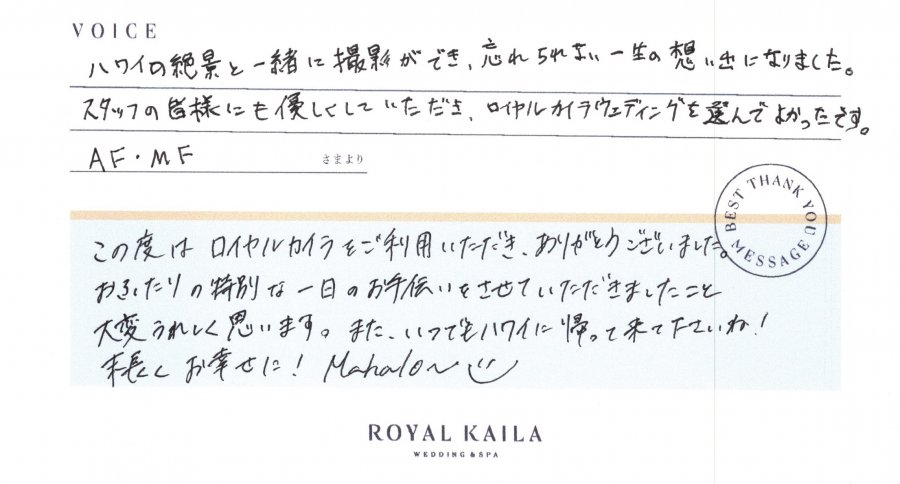 VOICE
ハワイの絶景と一緒に撮影ができ、忘れられない一生の想い出になりました。
スタッフの皆様にも優しくしていただき、ロイヤルカイラウェディングを選んでよかったです。
AF・MF さまより
BEST THANK YOU MESSAGE
この度はロイヤルカイラをご利用いただき、ありがとうございました。
おふたりの特別な一日のお手伝いをさせていただきましたこと
大変うれしく思います。また、いつでもハワイに帰って来て下さいね!
末長くお幸せに! Mahalo~
ROYAL KAILA
WEDDING & SPA